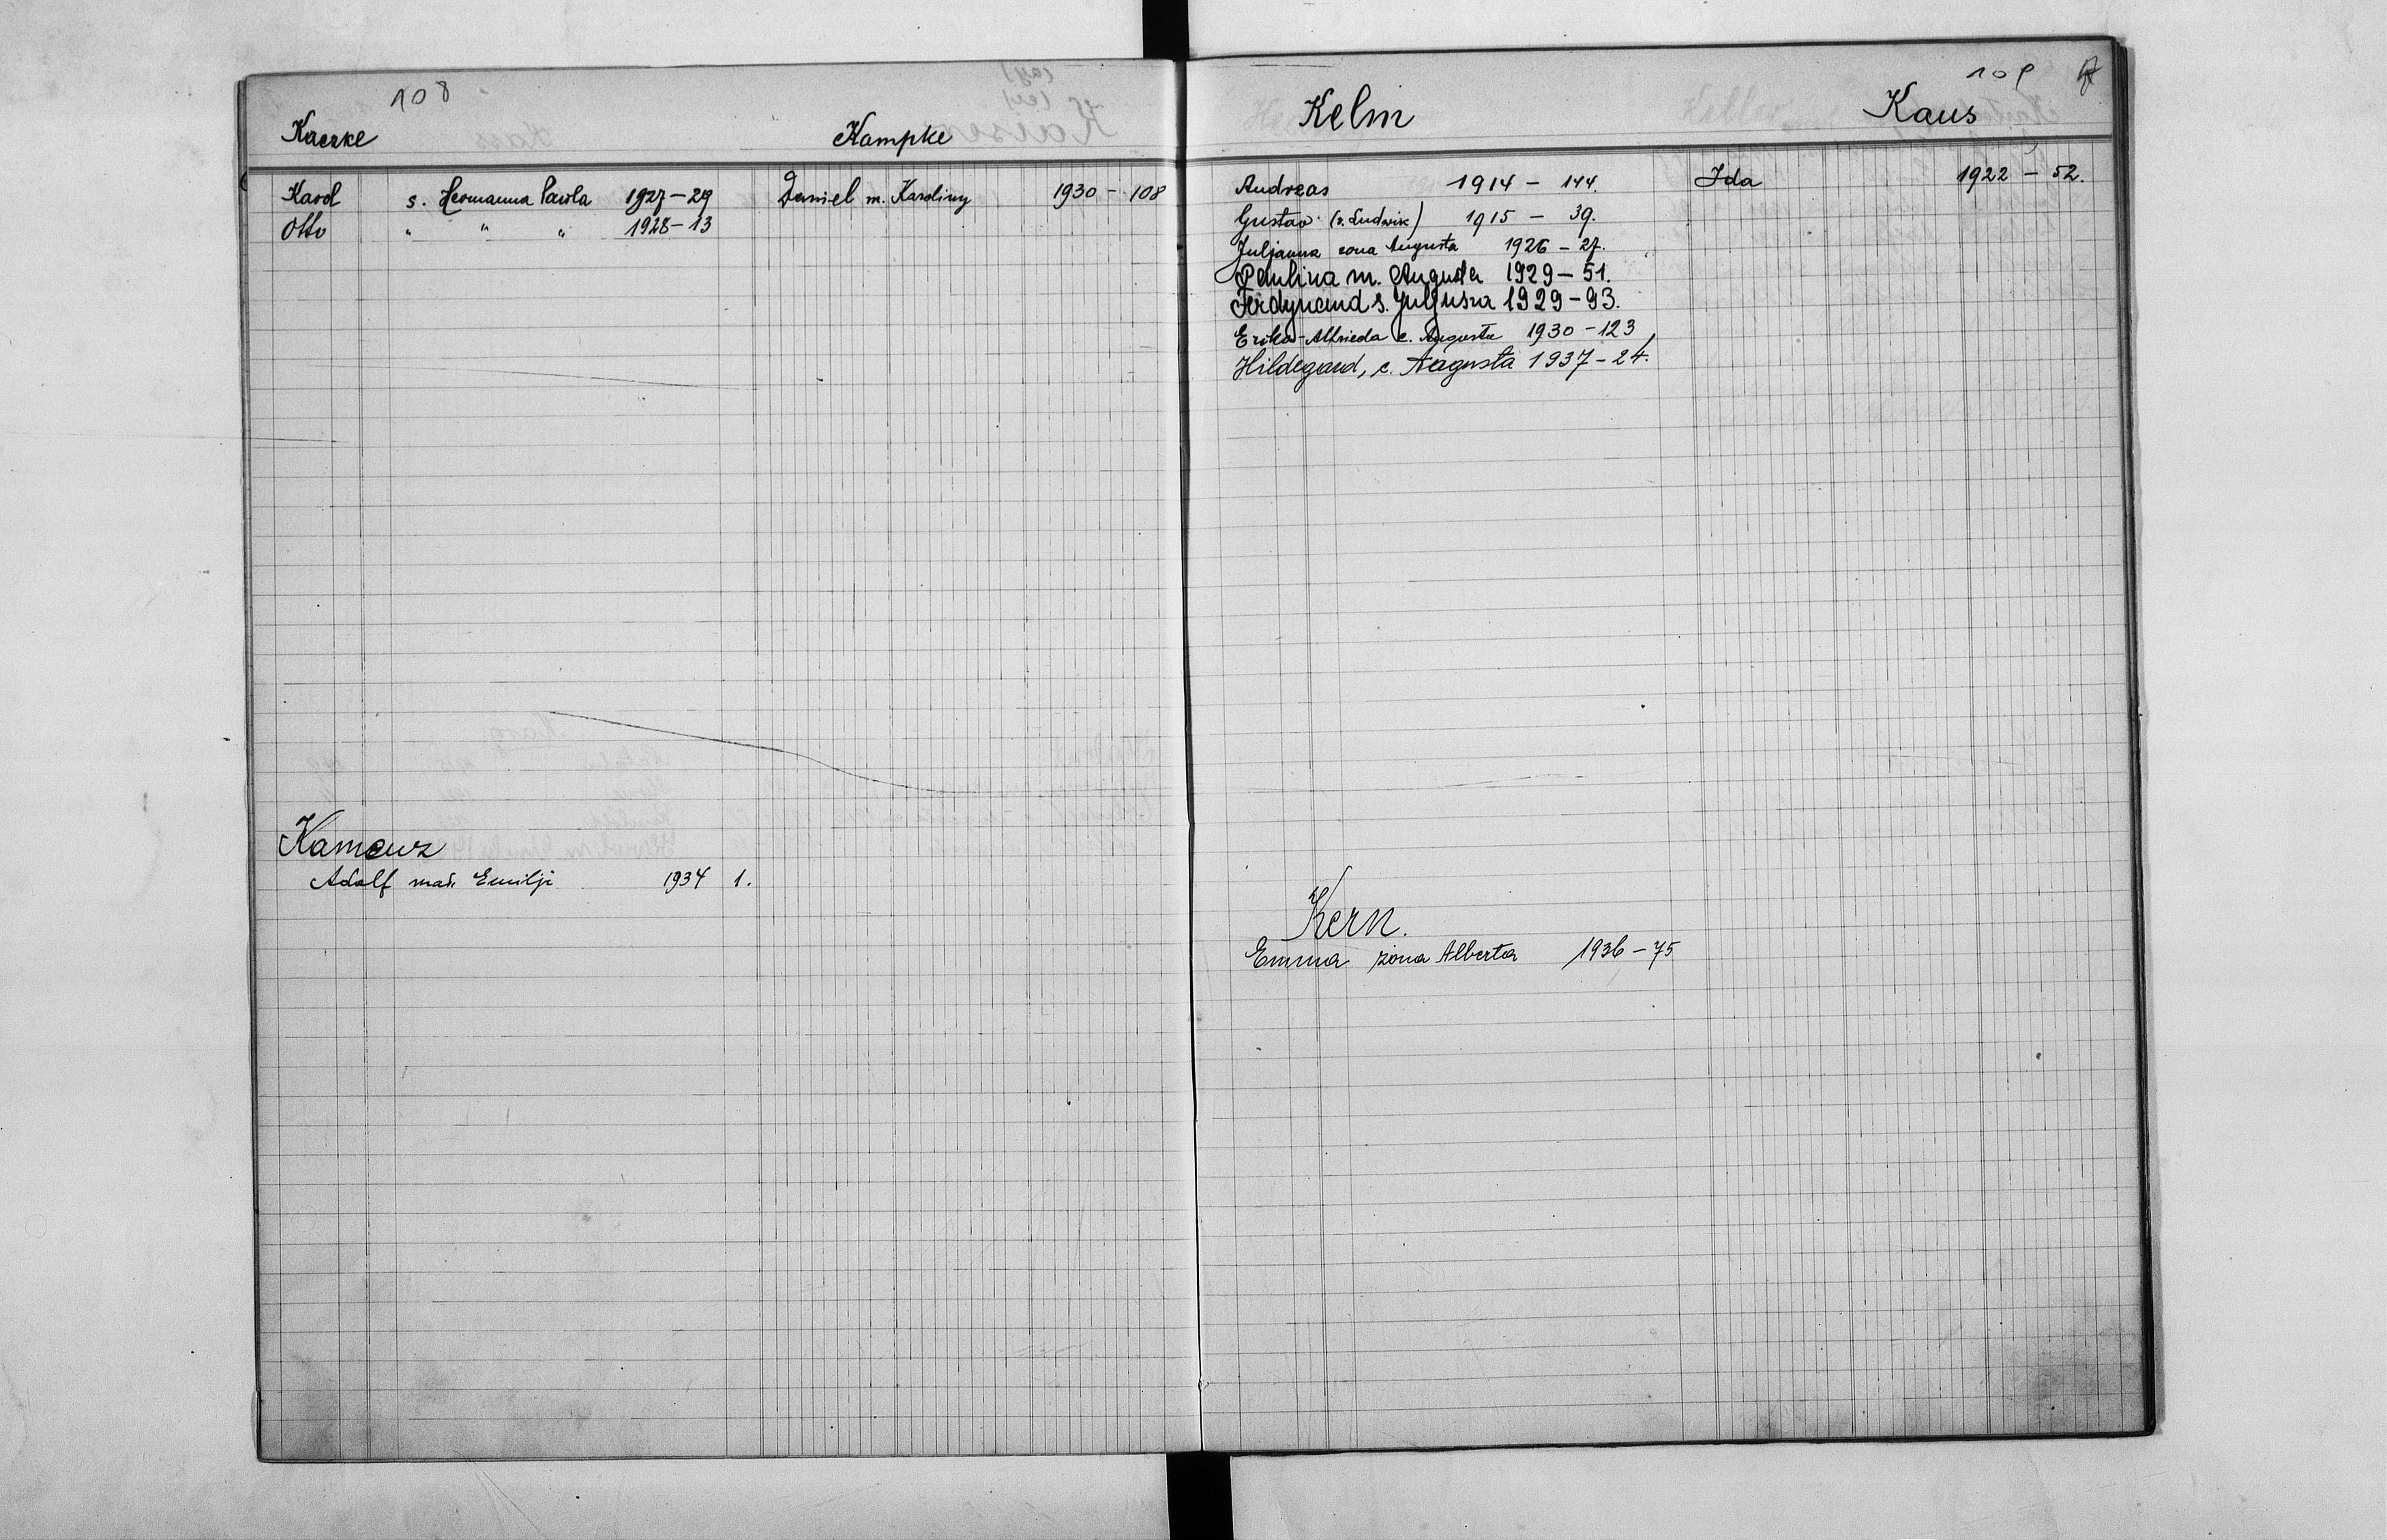 108
Kaczke
Karol s. Hermanna Pawła 1927-29
Otto " " " 1928-13
Kamenz
Adolf mąż Emilji 1934 1.
Kampke
Daniel m. Karoliny 1930-108
109
Kelm
Andreas 1914 - 144.
Gustav (s. Ludwik) 1915 - 39.
Juljanna żona Augusta 1926 - 27.
Paulina m. Augusta 1929-51.
Ferdynand s. Juljusza 1929-93.
Erika-Alfrieda c. Augusta 1930-123
Hildegard, c. Augusta 1937-24.
Kern.
Emma żona Alberta 1936-75
Kaus
Ida 1922 - 52.